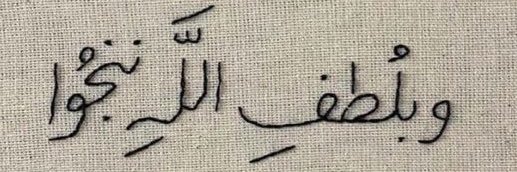 وبلُطفِ اللَّهِ ننجُوا